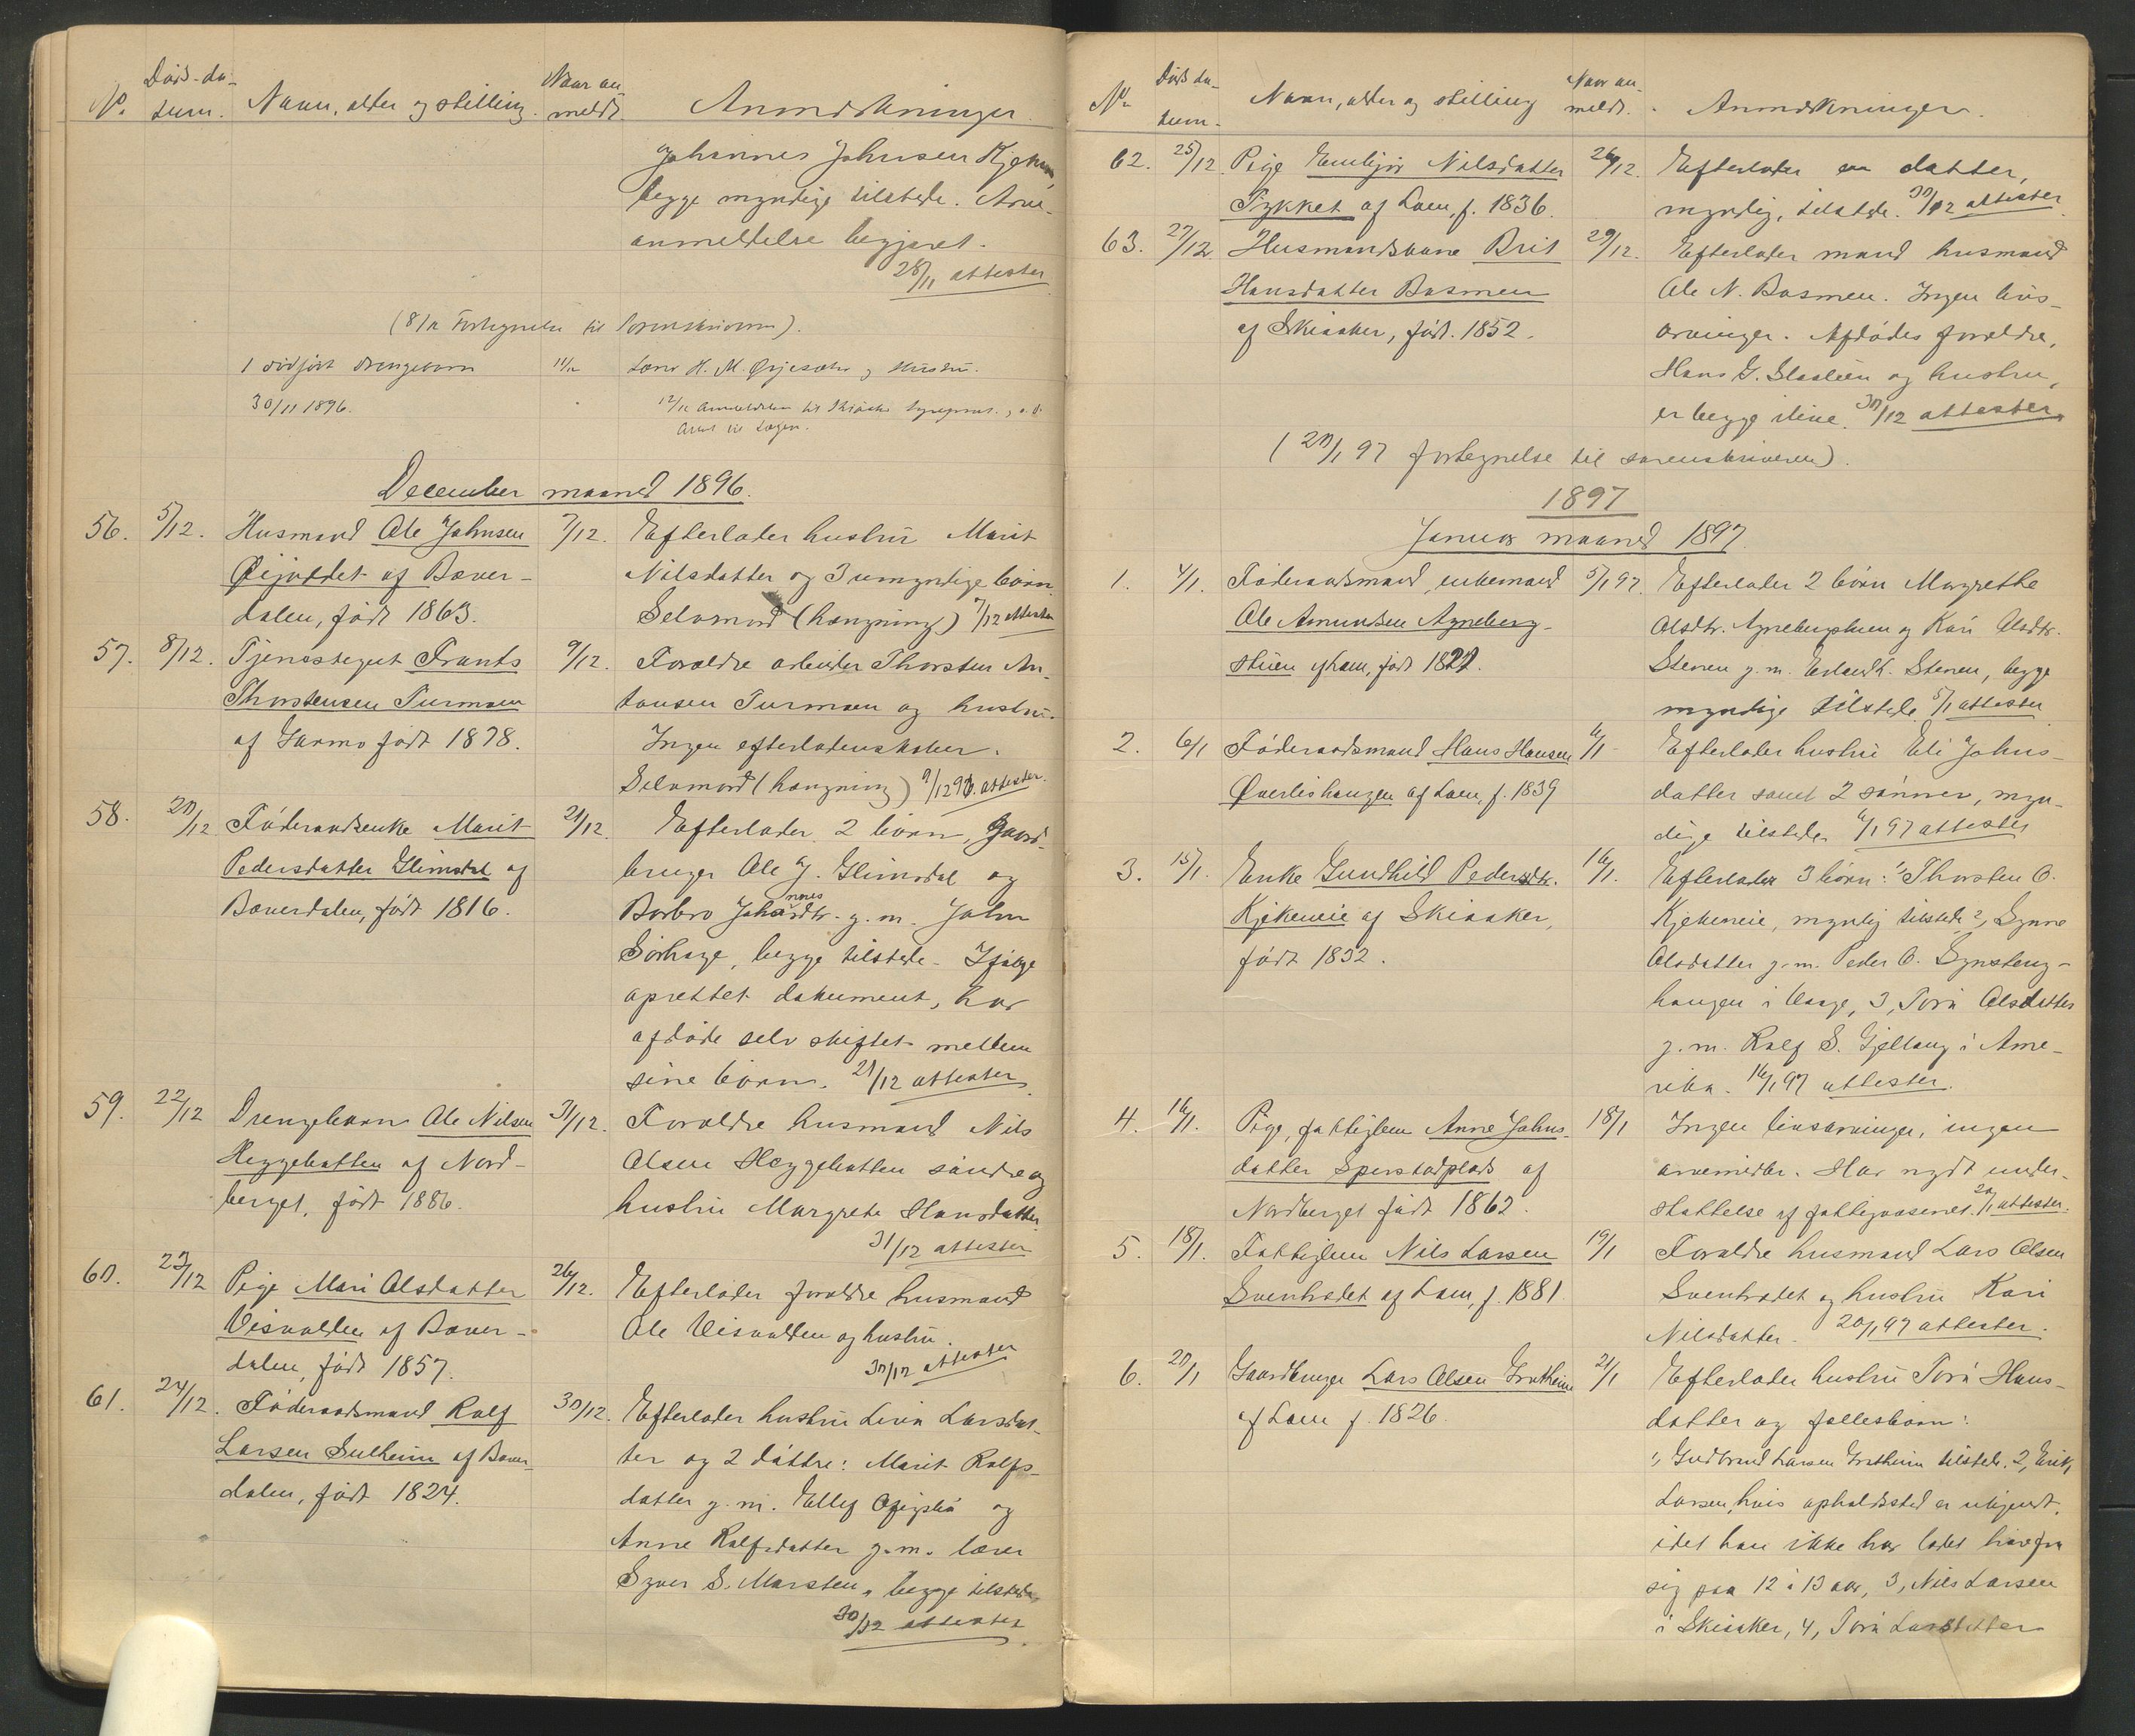 No. Døds-da-
tum. Navn, alder og stilling. Naar an-
meldt. Anmerkninger.
Johannes Johnsen
begge myndige tilstede.
anmeldelse begjæret.
28/11 attester
(8/12 Fortegnelse til sorenskriveren).
1 dødfødt drengebarn 11/12 H. M. og hustru.
30/11 1896.
12/12 Anmeldelsen til
December maaned 1896.
56. 5/12. Husmand Ole Johnsen 7/12. Efterlader hustru Marit
af Bæver- Nilsdatter og 3 umyndige børn.
dalen, født 1863. Selvmord (hængning) 7/12 attester
57. 8/12. Tjenestegut Frants 9/12. Forældre arbeider Thorsten An-
Thorstensen Turmoen tonsen Turmoen og hustru.
af Garmo født 1878. Ingen efterladenskaber.
Selvmord (hængning) 9/12 96. attester.
58. 20/12 Føderaadsenke Marit 21/12. Efterlader 2 børn, gaard-
Pedersdatter Glimsdal af bruger Ole J. Glimsdal og
Bæverdalen, født 1816. Barbro Johannesdtr. g. m. John
Sørhage, begge tilstede. Ifølge
oprettet dokument, har
afdøde selv skiftet mellem
sine børn. 21/12 attester.
59. 22/12 Drengebarn Ole Nilsen 31/12. Forældre husmand Nils
Heggebatten af Nord- Olsen Heggebatten søndre og
berget, født 1886. hustru Margrete Hansdatter
31/12 attester
60. 23/12 Pige Mari Olsdatter 26/12. Efterlader forældre husmand
Visvolden af Bæver- Ole Visvolden og hustru.
dalen, født 1857. 30/12 attester
61. 24/12. Føderaadsmand Rolf 30/12. Efterlader hustru Livia Larsdat-
Larsen Sulheim af Bæver- ter og 2 døttre: Marit Rolfs-
dalen, født 1824. datter g. m. Ellef og
Anne Rolfsdatter g. m. lærer
Syver S. Marsten, begge tilstede
30/12 attester
No. Døds da-
tum. Navn, alder og stilling Naar an-
meldt. Anmerkninger.
62. 25/12. Pige Embjør Nilsdatter 26/12. Efterlader en datter,
Tykket af Lom, f. 1836. myndig, tilstede. 30/12 attester
63. 27/12. Husmandskone Brit 29/12. Efterlader mand husmand
Hansdatter Basmoen Ole N. Basmoen. Ingen livs-
af Skiaaker, født 1852. arvinger. Afdødes forældre,
Hans G. og hustru,
er begge ilive. 30/12 attester
(20/1 97 fortegnelse til sorenskriveren).
1897
Januar maaned 1897.
1. 4/1. Føderaadsmand, enkemand 5/1 97. Efterlader 2 børn Margrethe
Ole Amundsen Ayneberg- Olsdtr. Aynebergstuen og Kari Olsdtr.
stuen af Lom, født 1821. Stenen g. m. Erland H. Stenen, begge
myndige tilstede. 5/1 attester
2. 6/1 Føderaadsmand Hans Hansen 6/1 Efterlader hustru Eli Johns-
Øverlishaugen af Lom, f. 1839 datter samt 2 sønner, myn-
dige tilstede. 6/1 97 attester
3. 15/1. Enke Gundhild Pedersdtr. 16/1. Efterlader 3 børn: 1, Thorsten O.
Kjekeneie af Skiaaker, Kjekeneie, myndig tilstede 2, Synne
født 1832. Olsdatter g. m. Peder O. Synsteng-
haugen i Vaage, 3, Tora Olsdatter
g. m. Rolf S. Gjeltaug i Ame-
rika. 16/1 97 attester.
4. 16/1. Pige, fattiglem Anne Johns- 18/1 Ingen livsarvinger, ingen
datter Sperstadplads af arvemidler. Har nydt under-
Nordberget født 1862. støttelse af fattigvæsenet. 20/1 attester.
5. 18/1. Fattiglem Nils Larsen 19/1 Forældre husmand Lars Olsen
Svenbradet af Lom, f. 1881. Svenbradet og hustru Kari
Nilsdatter. 20/1 97 attester.
6. 20/1 Gaardbruger Lars Olsen Gratheim 21/1 Efterlader hustru Tora Hans-
af Lom f. 1826. datter og fællesbørn:
1, Gudbrand Larsen Gratheim tilstede. 2, Erik
Larsen, hvis opholdssted er ubekjendt,
idet han ikke har ladet høre fra
sig paa 12 à 13 aar, 3, Nils Larsen
i Skiaaker, 4, Tora Larsdatter